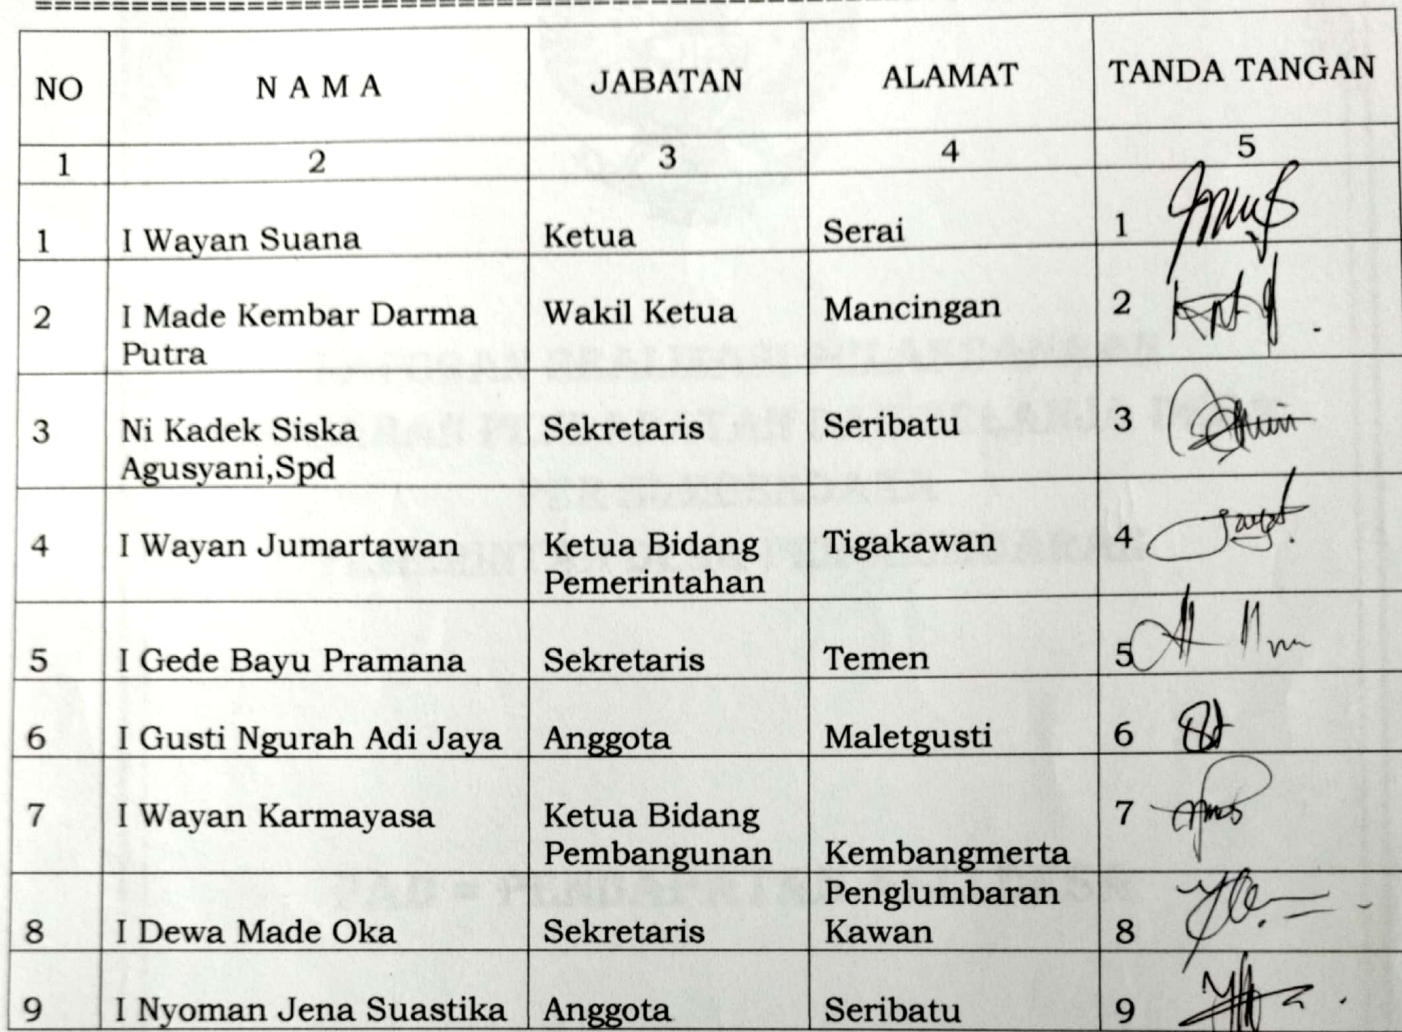 NO N A M A JABATAN ALAMAT TANDA TANGAN
1 2 3 4 5
1 I Wayan Suana Ketua Serai 1
2 I Made Kembar Darma Wakil Ketua Mancingan 2
Putra
3 Ni Kadek Siska Sekretaris Seribatu 3
Agusyani,Spd
4 I Wayan Jumartawan Ketua Bidang Tigakawan 4
Pemerintahan
5 I Gede Bayu Pramana Sekretaris Temen 5
6 I Gusti Ngurah Adi Jaya Anggota Maletgusti 6
7 I Wayan Karmayasa Ketua Bidang 7
Pembangunan Kembangmerta
Penglumbaran
8 I Dewa Made Oka Sekretaris Kawan 8
9 I Nyoman Jena Suastika Anggota Seribatu 9